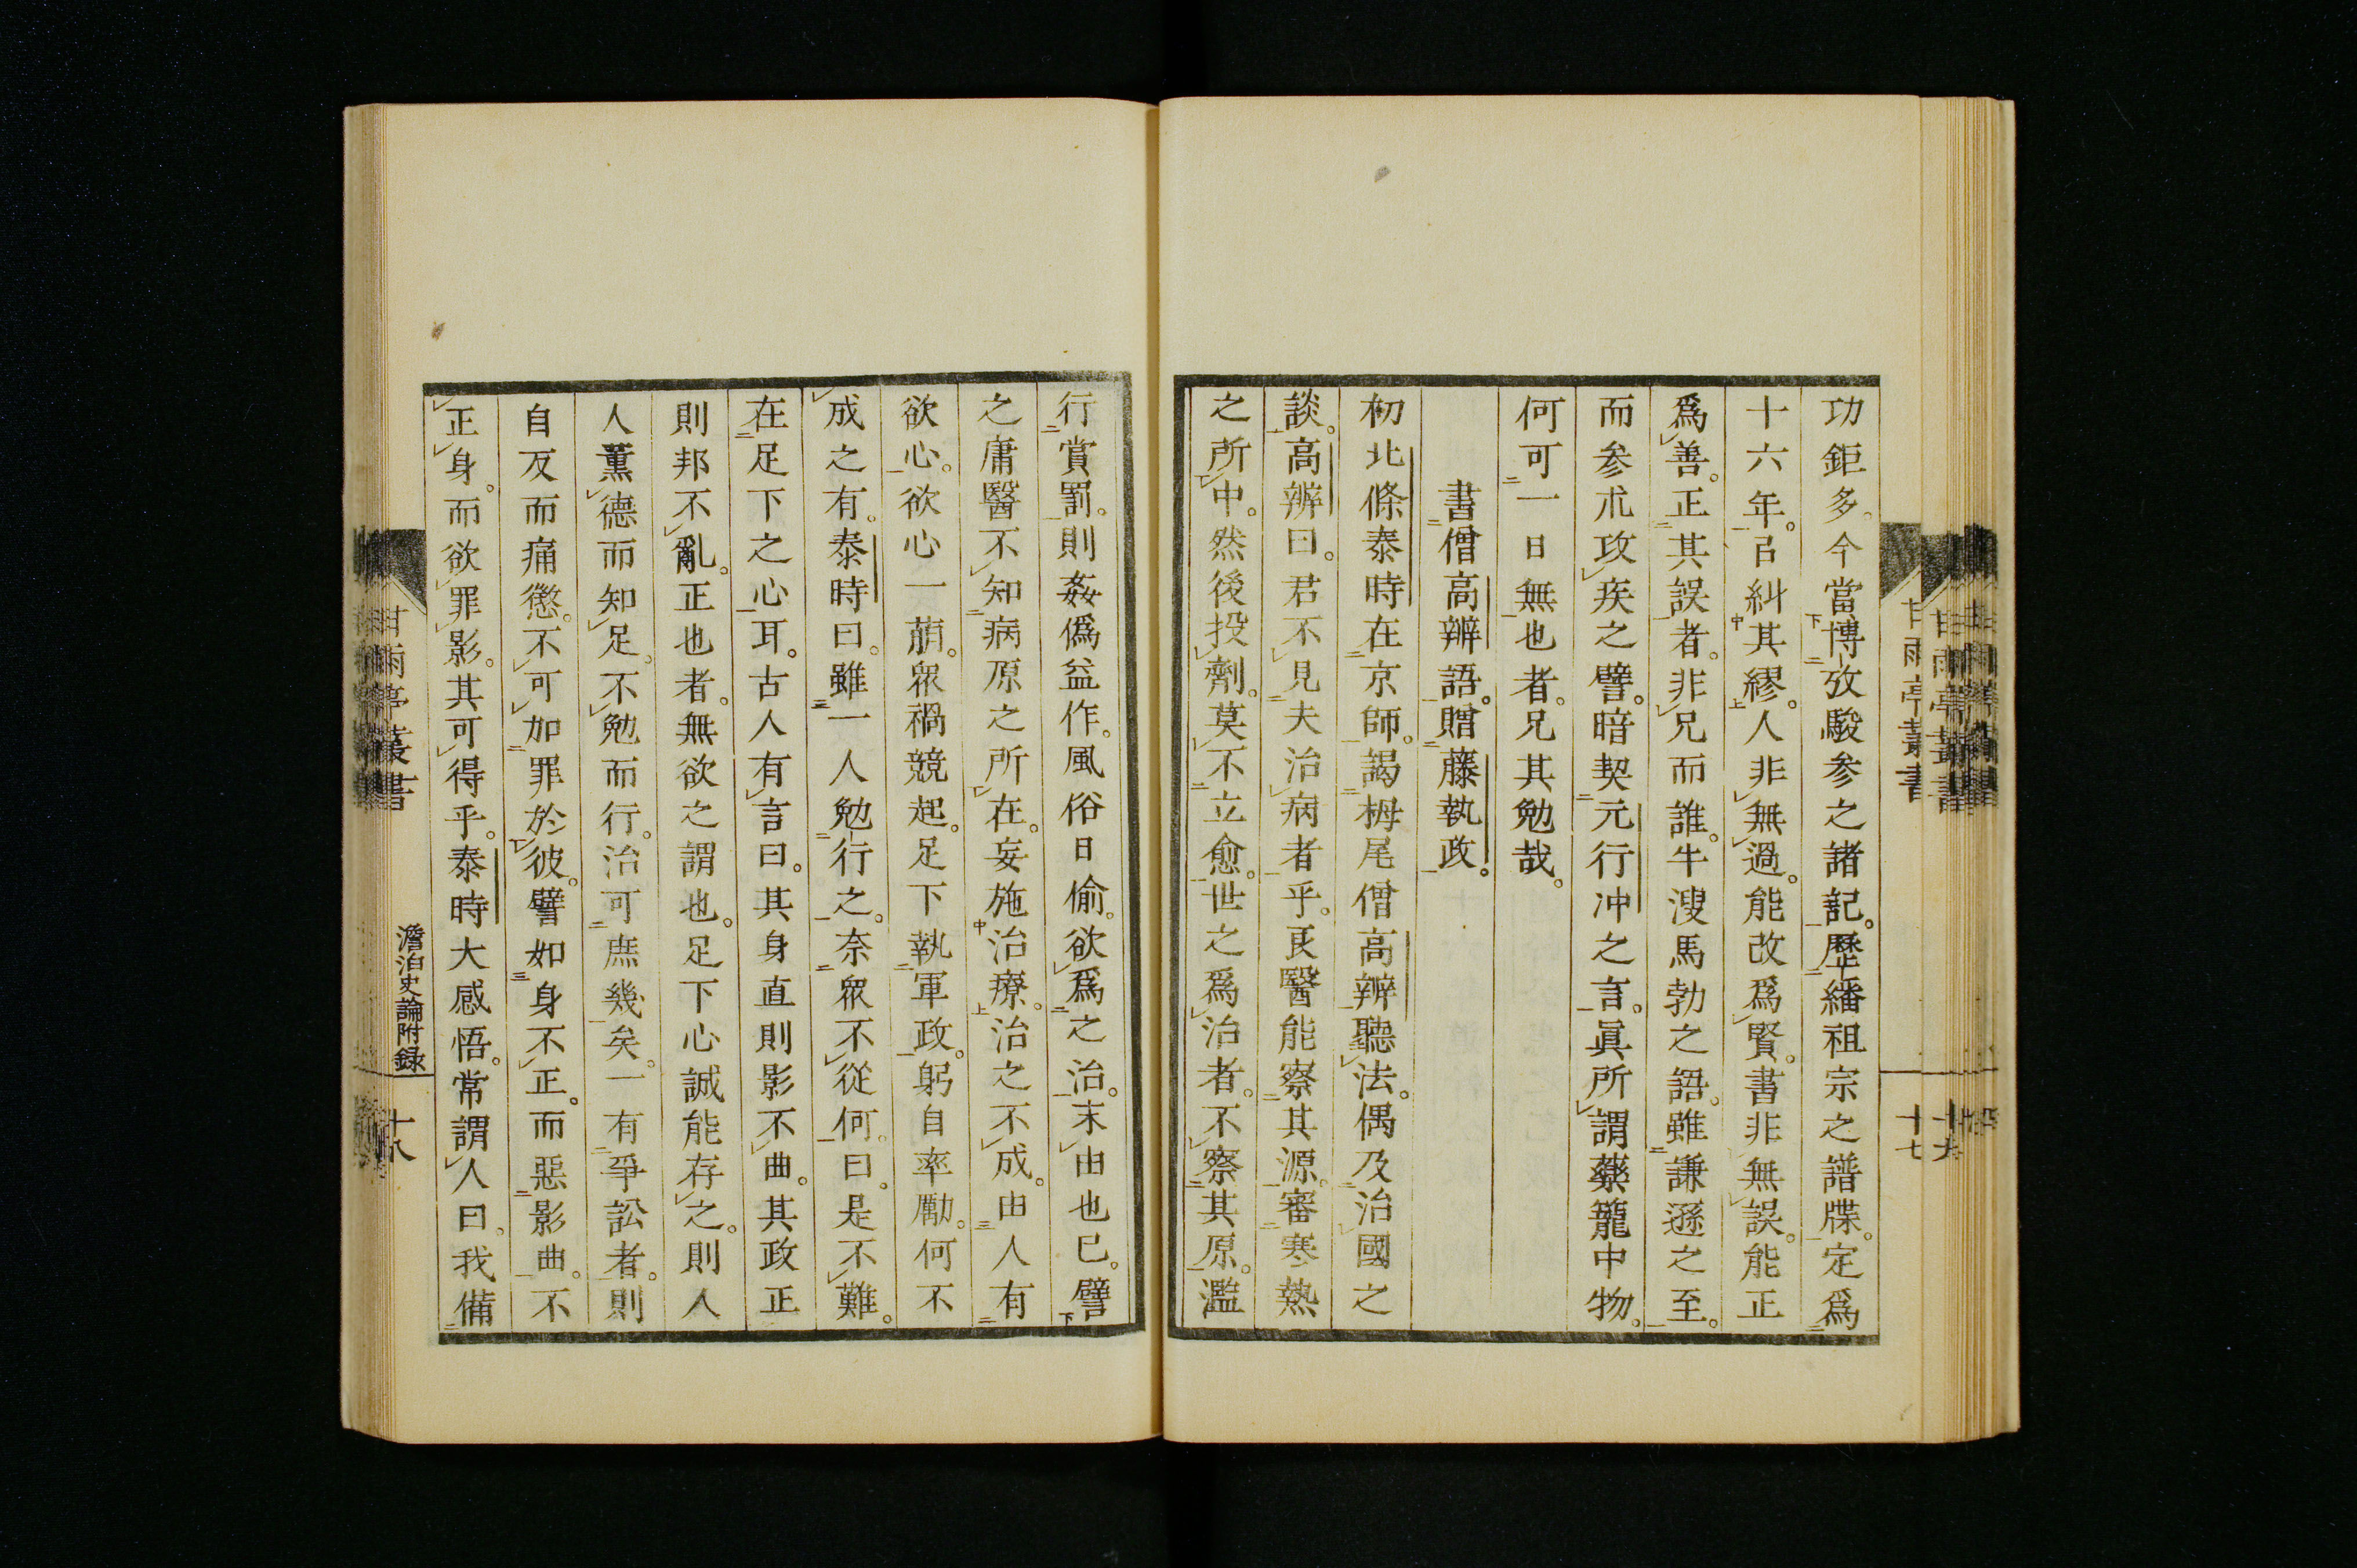 功鉅多。今當博攷駿参之諸記。歷繙祖宗之譜牒。定爲
十六年。㠯糾其繆。人非無過。能改爲賢。書非無誤。能正
爲善。正其誤者。非兄而誰。牛溲馬勃之語。雖謙遜之至。
而参朮攻疾之譬。暗契元行冲之言。眞所謂藥籠中物。
何可一日無也者。兄其勉哉。
書僧高辨語。贈藤執政。
初北條泰時在京師。謁栂尾僧高辨聽法。偶及治國之
談。高辨曰。君不見夫治病者乎。良醫能察其源。審寒熱
之所中。然後投劑。莫不立愈。世之爲治者。不察其原。濫
行賞罰。則姦僞益作。風俗日偷。欲爲之治。末由也已。譬
之庸醫不知病原之所在。妄施治療。治之不成。由人有
欲心。欲心一萠。衆禍競起。足下執軍政。躬自率勵。何不
成之有。泰時曰。雖一人勉行之。奈衆不從何。曰。是不難。
在足下之心耳。古人有言曰。其身直則影不曲。其政正
則邦不亂。正也者。無欲之謂也。足下心誠能存之。則人
人薫德而知足。不勉而行。治可庶幾矣。一有爭訟者。則
自反而痛懲。不可加罪於彼。譬如身不正。而惡影曲。不
正身。而欲罪影。其可得乎。泰時大感悟。常謂人曰。我備
甘雨亭叢書
十七
甘雨亭叢書
澹泊史論附録
十八